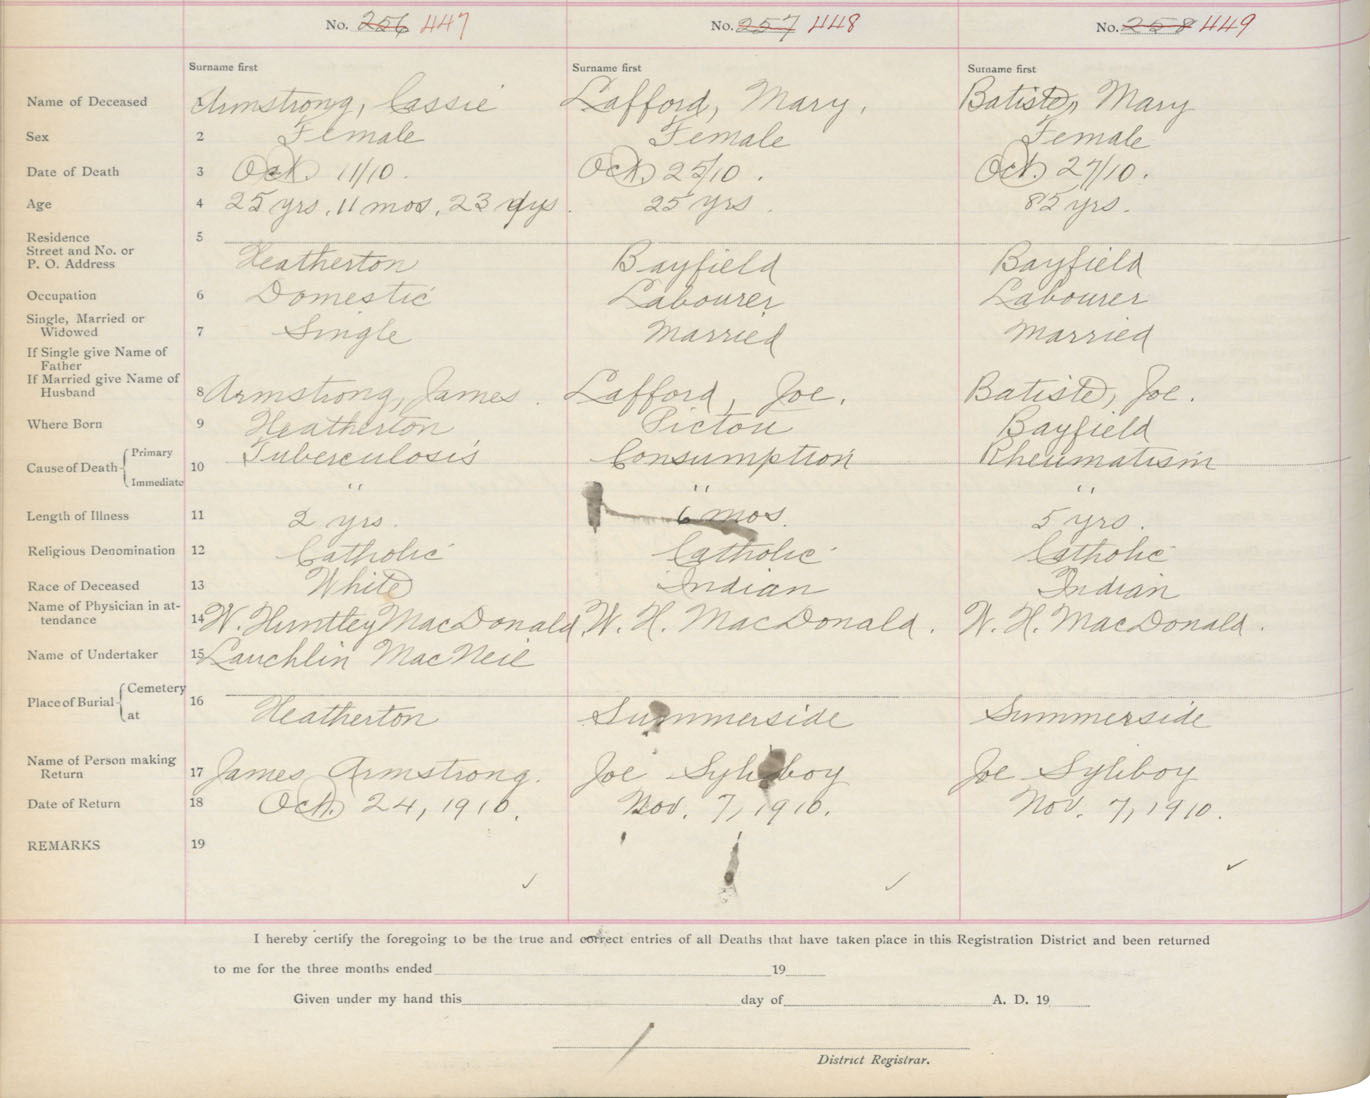 No. 256 447 No. 257 448 No. 258 449
Surname first Surname first Surname first
Name of Deceased 1 Armstrong, Cassie Lafford, Mary. Batiste, Mary
Sex 2 Female Female Female
Date of Death 3 Oct. 11/10. Oct. 25/10. Oct. 27/10.
Age 4 25 yrs. 11 mos. 23 dys. 25 yrs. 85 yrs.
Residence 5
Street and No. or
P. O. Address Heatherton Bayfield Bayfield
Occupation 6 Domestic Labourer Labourer
Single, Married or
Widowed 7 Single Married Married
If Single give Name of
Father
If Married give Name of
Husband 8 Armstrong, James. Lafford, Joe. Batiste, Joe.
Where Born 9 Heatherton Pictou Bayfield
Cause of Death Primary 10 Tuberculosis Consumption Rheumatism
Immediate " " "
Length of Illness 11 2 yrs. 6 mos. 5 yrs.
Religious Denomination 12 Catholic Catholic Catholic
Race of Deceased 13 White Indian Indian
Name of Physician in at-
tendance 14 W. Huntley MacDonald. W. H. MacDonald. W. H. MacDonald.
Name of Undertaker 15 Lauchlin MacNeil
Place of Burial Cemetery 16
at Heatherton Summerside Summerside
Name of Person making
Return 17 James Armstrong. Joe Syliboy Joe Syliboy
Date of Return 18 Oct. 24, 1910. Nov. 7, 1910. Nov. 7, 1910.
REMARKS 19
I hereby certify the foregoing to be the true and correct entries of all Deaths that have taken place in this Registration District and been returned
to me for the three months ended 19
Given under my hand this day of A. D. 19
District Registrar.